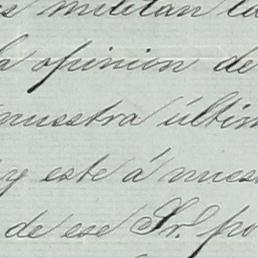 militan la
opinion de
nuestra últim
y este á nues
de ese Sr. po